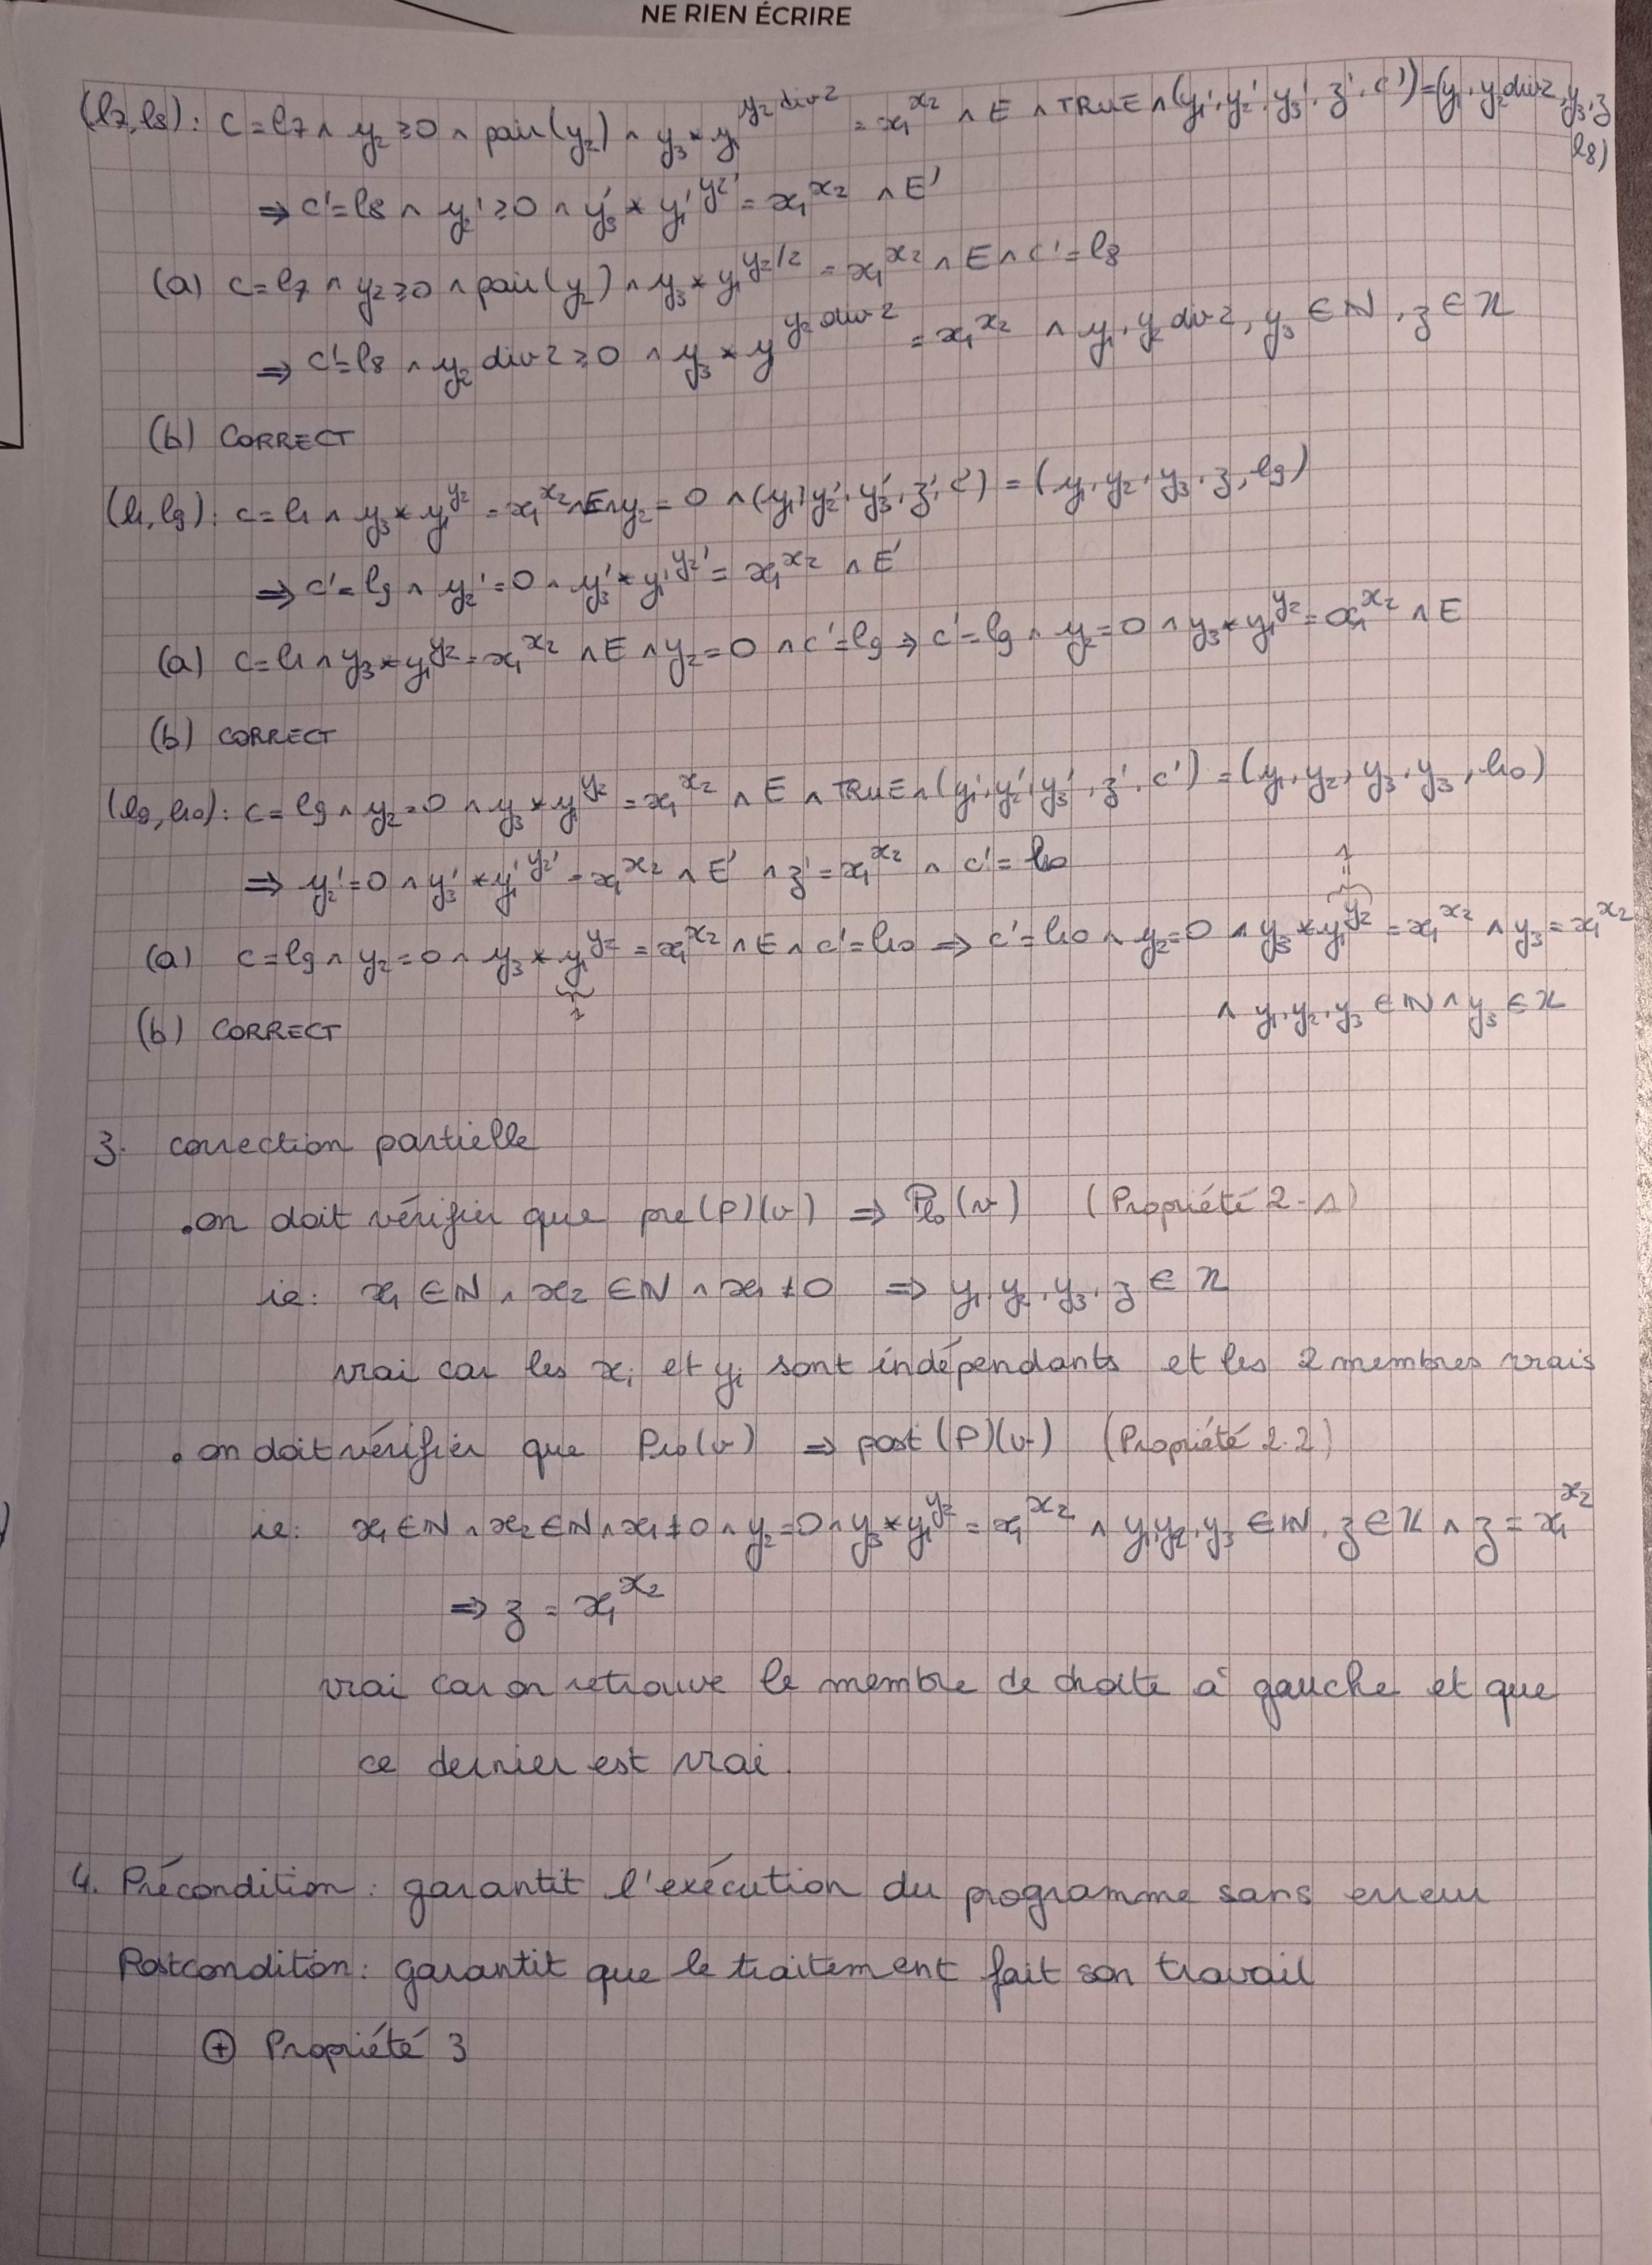 NE RIEN ÉCRIRE
(l7,l8): C=l7 ∧ y2≥0 ∧ pair(y2) ∧ y3*y1^(y2 div 2) = x1^x2 ∧ E ∧ TRUE ∧ (y1', y2', y3', z', c')=(y1, y2 div 2, y3, z
l8)
⇒ c'=l8 ∧ y2'≥0 ∧ y3'*y1'^y2' = x1^x2 ∧ E'
(a) c=l7 ∧ y2≥0 ∧ pair(y2) ∧ y3*y1^(y2/2) = x1^x2 ∧ E ∧ c'=l8
⇒ c'=l8 ∧ y2 div 2≥0 ∧ y3*y^(y2 div 2) = x1^x2 ∧ y1, y2 div 2, y3 ∈ ℕ, z ∈ ℤ
(b) CORRECT
(l1,l9): c=l1 ∧ y3*y1^y2 = x1^x2 ∧ E ∧ y2=0 ∧ (y1', y2', y3', z', c') = (y1, y2, y3, z, l9)
⇒ c'=l9 ∧ y2'=0 ∧ y3'*y1'^y2' = x1^x2 ∧ E'
(a) c=l1 ∧ y3*y1^y2 = x1^x2 ∧ E ∧ y2=0 ∧ c'=l9 ⇒ c'=l9 ∧ y2=0 ∧ y3*y1^y2 = x1^x2 ∧ E
(b) CORRECT
(l9,l10): c=l9 ∧ y2=0 ∧ y3*y1^y2 = x1^x2 ∧ E ∧ TRUE ∧ (y1', y2', y3', z', c') = (y1, y2, y3, y3, l10)
⇒ y2'=0 ∧ y3'*y1'^y2' = x1^x2 ∧ E' ∧ z'=x1^x2 ∧ c'=l10
=1
(a) c=l9 ∧ y2=0 ∧ y3*y1^y2 = x1^x2 ∧ E ∧ c'=l10 ⇒ c'=l10 ∧ y2=0 ∧ y3*y1^y2 = x1^x2 ∧ y3=x1^x2
1
∧ y1, y2, y3 ∈ ℕ ∧ y3 ∈ ℤ
(b) CORRECT
3. correction partielle
.on doit vérifier que pre(P)(v) ⇒ Pl0(v) (Propriété 2-1)
ie: x1 ∈ ℕ ∧ x2 ∈ ℕ ∧ x1≠0 ⇒ y1, y2, y3, z ∈ ℤ
vrai car les xi et yi sont indépendants et les 2 membres vrais
. on doit vérifier que Pl10(v) ⇒ post(P)(v) (Propriété 2.2)
ie: x1∈ℕ ∧ x2∈ℕ ∧ x1≠0 ∧ y2=0 ∧ y3*y1^y2 = x1^x2 ∧ y1,y2,y3 ∈ ℕ, z∈ℤ ∧ z=x1^x2
⇒ z = x1^x2
vrai car on retrouve le membre de droite à gauche et que
ce dernier est vrai.
4. Précondition: garantit l'exécution du programme sans erreur
Postcondition: garantit que le traitement fait son travail
⊕ Propriété 3